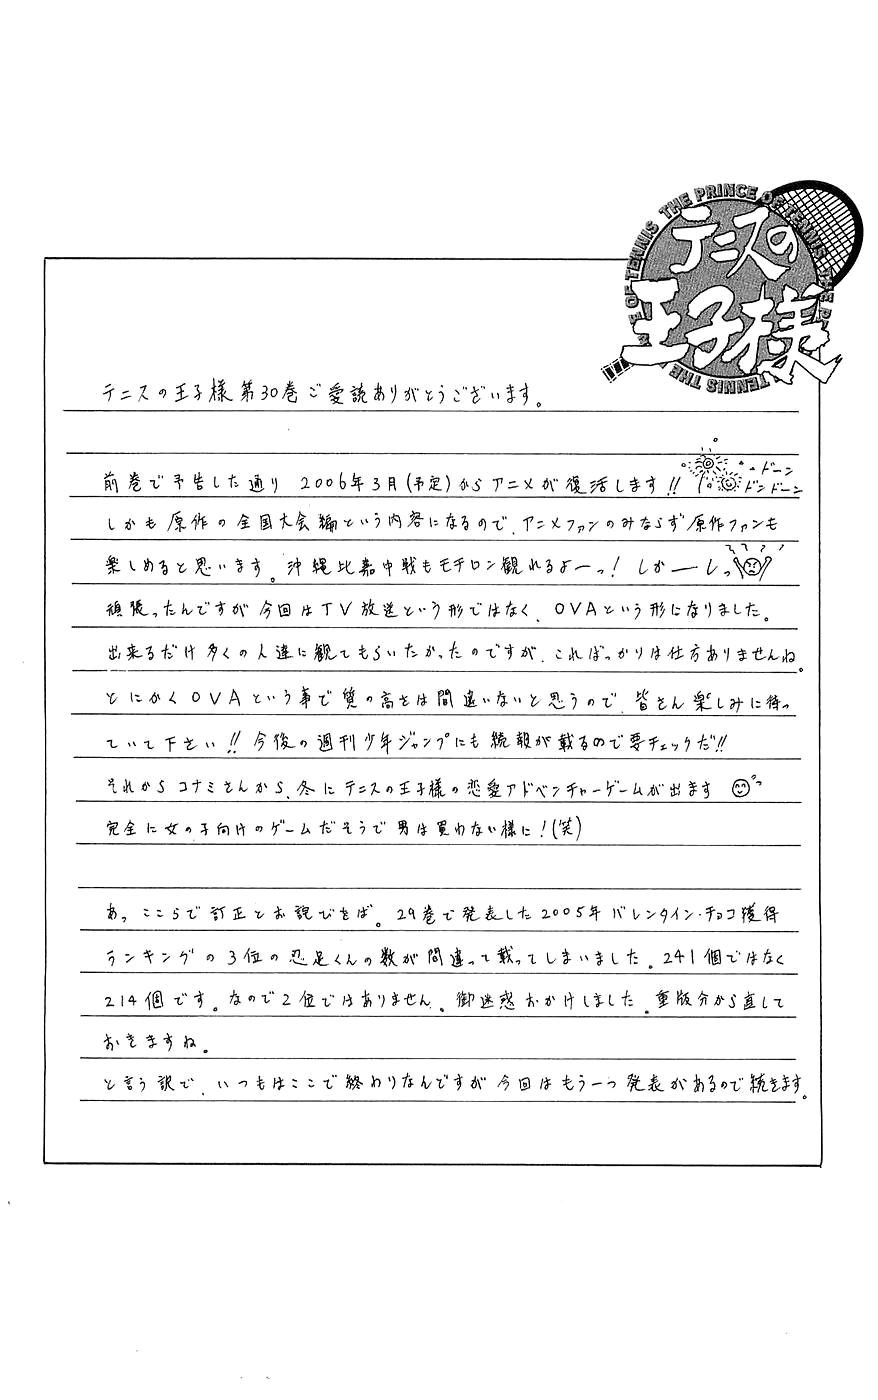 THE PRINCE OF TENNIS
テニスの
王子様
テニスの王子様第30巻ご愛読ありがとうございます。
前巻で予告した通り 2006年3月(予定)からアニメが復活します!! ドーン
ドンドーン
しかも原作の全国大会編という内容になるので、アニメファンのみならず原作ファンも
楽しめると思います。沖縄比嘉中戦もモチロン観れるよーっ! しかーしっ
頑張ったんですが今回はTV放送という形ではなく、OVAという形になりました。
出来るだけ多くの人達に観てもらいたかったのですが、こればっかりは仕方ありませんね。
とにかくOVAという事で質の高さは間違いないと思うので、皆さん楽しみに待っ
ていて下さい!! 今後の週刊少年ジャンプにも続報が載るので要チェックだ!!
それからコナミさんから、冬にテニスの王子様の恋愛アドベンチャーゲームが出ます
完全に女の子向けのゲームだそうで男は買わない様に!(笑)
あっ ここらで訂正とお詫びをば。29巻で発表した2005年バレンタイン・チョコ獲得
ランキングの3位の忍足くんの数が間違って載ってしまいました。241個ではなく
214個です。なので2位ではありません。御迷惑おかけしました。重版分から直して
おきますね。
と言う訳で、いつもはここで終わりなんですが今回はもう一つ発表があるので続きます。